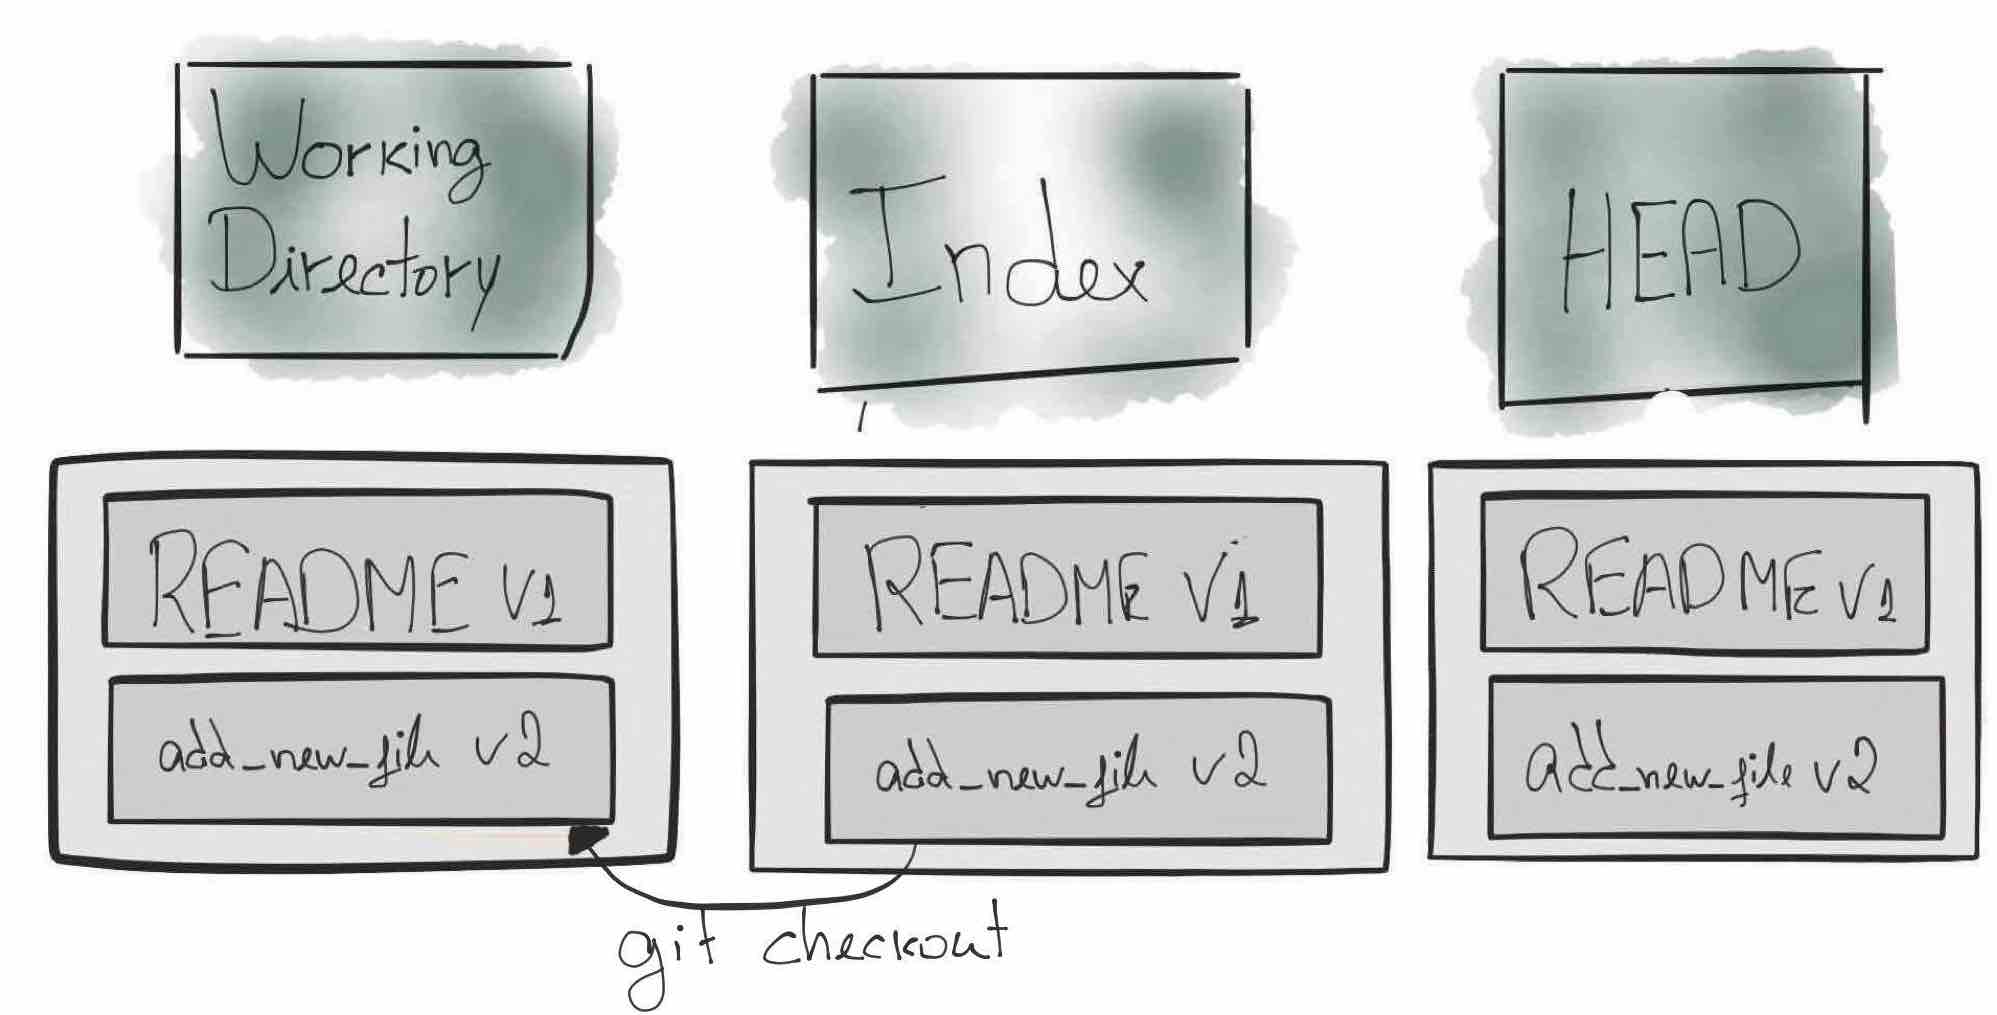 Working
Directory
Index
HEAD
README v1
README v1
README v1
add_new_file v2
add_new_file v2
add_new_file v2
git checkout